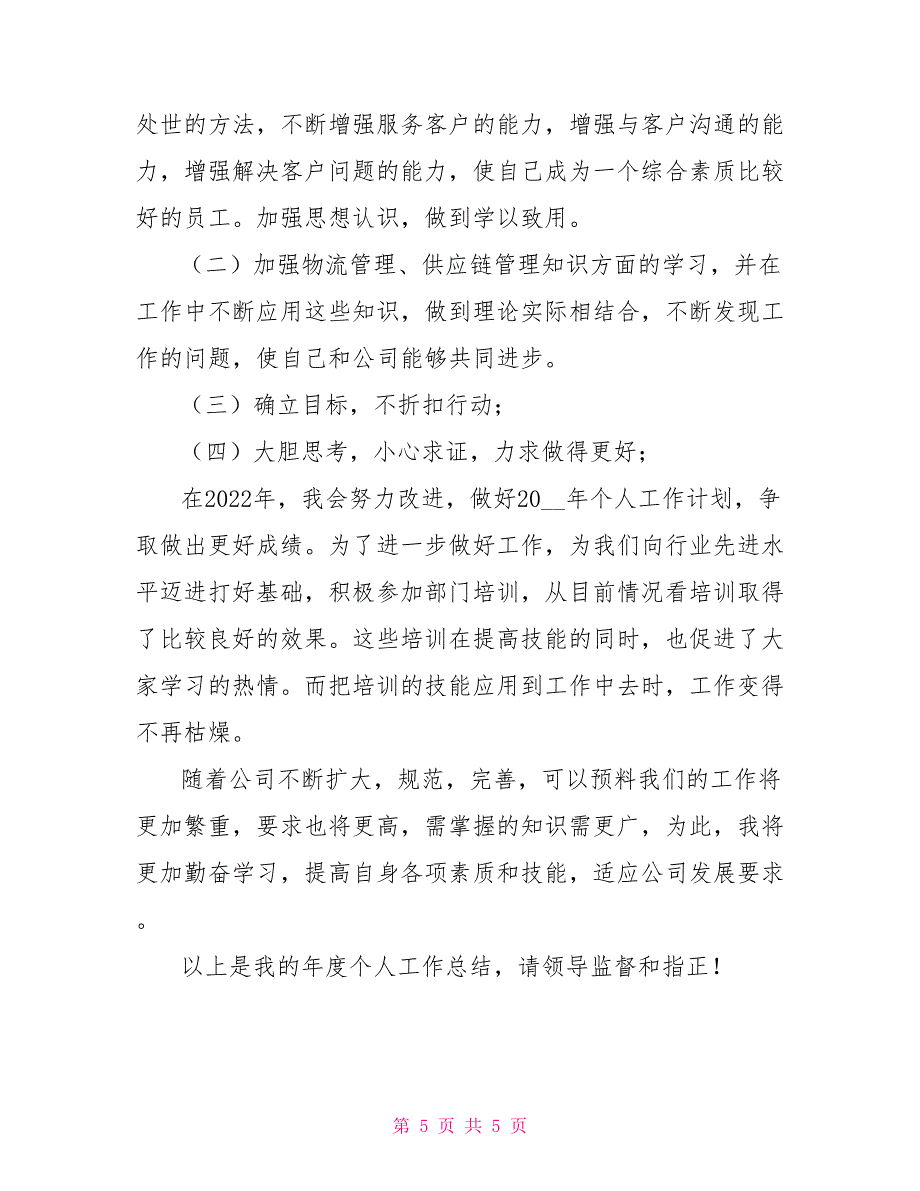 处世的方法，不断增强服务客户的能力，增强与客户沟通的能
力，增强解决客户问题的能力，使自己成为一个综合素质比较
好的员工。加强思想认识，做到学以致用。
（二）加强物流管理、供应链管理知识方面的学习，并在
工作中不断应用这些知识，做到理论实际相结合，不断发现工
作的问题，使自己和公司能够共同进步。
（三）确立目标，不折扣行动；
（四）大胆思考，小心求证，力求做得更好；
在2022年，我会努力改进，做好20__年个人工作计划，争
取做出更好成绩。为了进一步做好工作，为我们向行业先进水
平迈进打好基础，积极参加部门培训，从目前情况看培训取得
了比较良好的效果。这些培训在提高技能的同时，也促进了大
家学习的热情。而把培训的技能应用到工作中去时，工作变得
不再枯燥。
随着公司不断扩大，规范，完善，可以预料我们的工作将
更加繁重，要求也将更高，需掌握的知识需更广，为此，我将
更加勤奋学习，提高自身各项素质和技能，适应公司发展要求
。
以上是我的年度个人工作总结，请领导监督和指正！
第 5 页 共 5 页